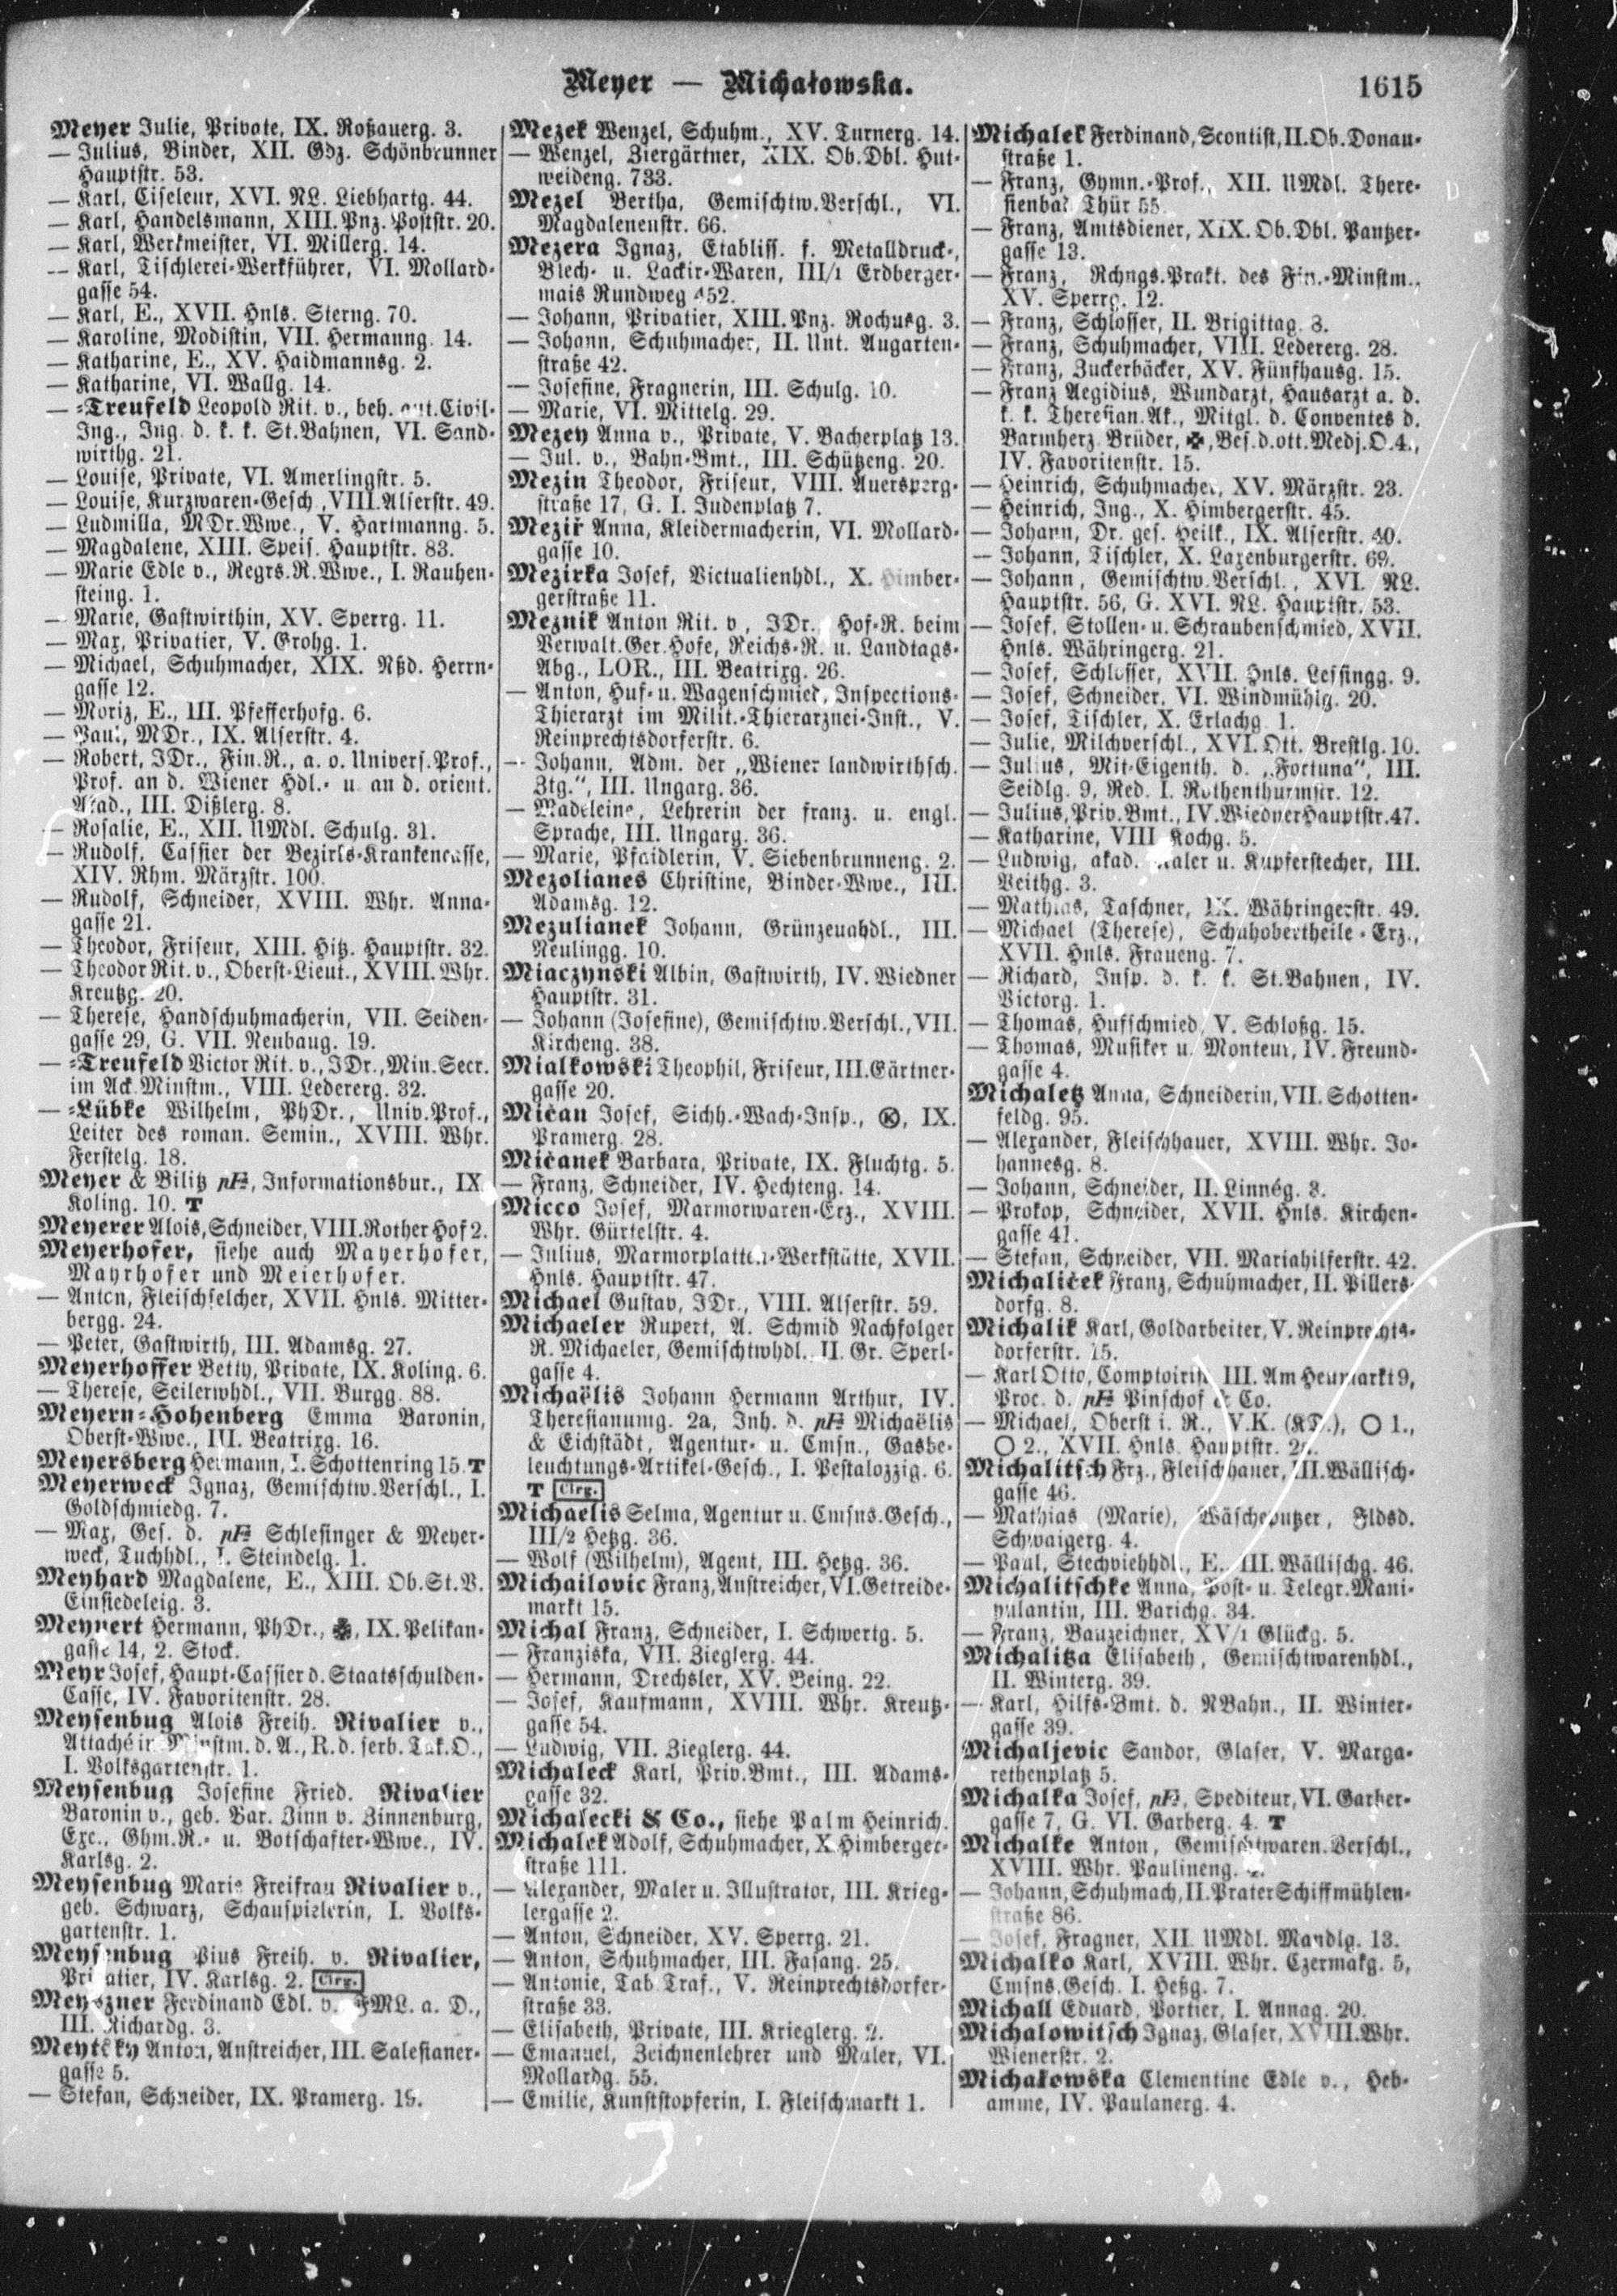 Meyer — Michałowska.
1615
Meyer Julie, Private, IX. Roßauerg. 3.
— Julius, Binder, XII. Gdz. Schönbrunner
Hauptstr. 53.
— Karl, Ciseleur, XVI. NL. Liebhartg. 44.
— Karl, Handelsmann, XIII. Pnz. Poststr. 20.
— Karl, Werkmeister, VI. Millerg. 14.
— Karl, Tischlerei-Werkführer, VI. Mollard-
gasse 54.
— Karl, E., XVII. Hnls. Sterng. 70.
— Karoline, Modistin, VII. Hermanng. 14.
— Katharine, E., XV. Haidmannsg. 2.
— Katharine, VI. Wallg. 14.
— -Treufeld Leopold Rit. v., beh. aut. Civil-
Ing., Ing. d. k. k. St.Bahnen, VI. Sand-
wirthg. 21.
— Louise, Private, VI. Amerlingstr. 5.
— Louise, Kurzwaren-Gesch., VIII. Alserstr. 49.
— Ludmilla, MDr.Wwe., V. Hartmanng. 5.
— Magdalene, XIII. Speis. Hauptstr. 83.
— Marie Edle v., Regrs.R.Wwe., I. Rauhen-
steing. 1.
— Marie, Gastwirthin, XV. Sperrg. 11.
— Max, Privatier, V. Grohg. 1.
— Michael, Schuhmacher, XIX. Nßd. Herrn-
gasse 12.
— Moriz, E., III. Pfefferhofg. 6.
— Paul, MDr., IX. Alserstr. 4.
— Robert, JDr., Fin.R., a. o. Univers.Prof.,
Prof. an d. Wiener Hdl.- u. an d. orient.
Akad., III. Dißlerg. 8.
— Rosalie, E., XII. UMdl. Schulg. 31.
— Rudolf, Cassier der Bezirks-Krankencasse,
XIV. Rhm. Märzstr. 100.
— Rudolf, Schneider, XVIII. Whr. Anna-
gasse 21.
— Theodor, Friseur, XIII. Hitz. Hauptstr. 32.
— Theodor Rit. v., Oberst-Lieut., XVIII. Whr.
Kreutzg. 20.
— Therese, Handschuhmacherin, VII. Seiden-
gasse 29, G. VII. Neubaug. 19.
— -Treufeld Victor Rit. v., JDr., Min.Secr.
im Ack.Minstm., VIII. Ledererg. 32.
— -Lübke Wilhelm, PhDr., Univ.Prof.,
Leiter des roman. Semin., XVIII. Whr.
Ferstelg. 18.
Meyer & Bilitz pFa, Informationsbur., IX.
Koling. 10. T
Meyerer Alois, Schneider, VIII. Rother Hof 2.
Meyerhofer, siehe auch Mayerhofer,
Mayrhofer und Meierhofer.
— Anton, Fleischselcher, XVII. Hnls. Mitter-
bergg. 24.
— Peter, Gastwirth, III. Adamsg. 27.
Meyerhoffer Betty, Private, IX. Koling. 6.
— Therese, Seilerwhdl., VII. Burgg. 88.
Meyern-Hohenberg Emma Baronin,
Oberst-Wwe., III. Beatrixg. 16.
Meyersberg Hermann, I. Schottenring 15. T
Meyerweck Ignaz, Gemischtw.Verschl., I.
Goldschmiedg. 7.
— Max, Ges. d. pFa Schlesinger & Meyer-
weck, Tuchhdl., I. Steindelg. 1.
Meyhard Magdalene, E., XIII. Ob.St.V.
Einsiedeleig. 3.
Meynert Hermann, PhDr., IX. Pelikan-
gasse 14, 2. Stock.
Meyr Josef, Haupt-Cassier d. Staatsschulden-
Casse, IV. Favoritenstr. 28.
Meysenbug Alois Freih. Rivalier v.,
Attaché im Minstm. d. A., R. d. serb. Tak.O.,
I. Volksgartenstr. 1.
Meysenbug Josefine Fried. Rivalier
Baronin v., geb. Bar. Zinn v. Zinnenburg,
Exc., Ghm.R.- u. Botschafter-Wwe., IV.
Karlsg. 2.
Meysenbug Marie Freifrau Rivalier v.,
geb. Schwarz, Schauspielerin, I. Volks-
gartenstr. 1.
Meysenbug Pius Freih. v. Rivalier,
Privatier, IV. Karlsg. 2. Clrg.
Meyszner Ferdinand Edl. v. FML. a. D.,
III. Richardg. 3.
Meytsky Anton, Anstreicher, III. Salesianer-
gasse 5.
— Stefan, Schneider, IX. Pramerg. 19.
Mezek Wenzel, Schuhm., XV. Turnerg. 14.
— Wenzel, Ziergärtner, XIX. Ob.Dbl. Hut-
weideng. 733.
Mezel Bertha, Gemischtw.Verschl., VI.
Magdalenenstr. 66.
Mezera Ignaz, Etabliss. f. Metalldruck-,
Blech- u. Lackir-Waren, III/1 Erdberger-
mais Rundweg 452.
— Johann, Privatier, XIII. Pnz. Rochusg. 3.
— Johann, Schuhmacher, II. Unt. Augarten-
straße 42.
— Josefine, Fragnerin, III. Schulg. 10.
— Marie, VI. Mittelg. 29.
Mezey Anna v., Private, V. Bacherplatz 13.
— Jul. v., Bahn-Bmt., III. Schützeng. 20.
Mezin Theodor, Friseur, VIII. Auersperg-
straße 17, G. I. Judenplatz 7.
Meziř Anna, Kleidermacherin, VI. Mollard-
gasse 10.
Mezirka Josef, Victualienhdl., X. Himber-
gerstraße 11.
Meznik Anton Rit. v., JDr., Hof-R. beim
Verwalt.Ger.Hofe, Reichs-R. u. Landtags-
Abg., LOR., III. Beatrixg. 26.
— Anton, Huf- u. Wagenschmied, Inspections-
Thierarzt im Milit.-Thierarznei-Inst., V.
Reinprechtsdorferstr. 6.
— Johann, Adm. der „Wiener landwirthsch.
Ztg.“, III. Ungarg. 36.
— Madeleine, Lehrerin der franz. u. engl.
Sprache, III. Ungarg. 36.
— Marie, Pfaidlerin, V. Siebenbrunneng. 2.
Mezolianes Christine, Binder-Wwe., III.
Adamsg. 12.
Mezulianek Johann, Grünzeughdl., III.
Neulingg. 10.
Miaczynski Albin, Gastwirth, IV. Wiedner
Hauptstr. 31.
— Johann (Josefine), Gemischtw.Verschl., VII.
Kircheng. 38.
Mialkowski Theophil, Friseur, III. Gärtner-
gasse 20.
Mičan Josef, Sichh.-Wach-Insp., Ⓚ, IX.
Pramerg. 28.
Mičanek Barbara, Private, IX. Fluchtg. 5.
— Franz, Schneider, IV. Hechteng. 14.
Micco Josef, Marmorwaren-Erz., XVIII.
Whr. Gürtelstr. 4.
— Julius, Marmorplatten-Werkstätte, XVII.
Hnls. Hauptstr. 47.
Michael Gustav, JDr., VIII. Alserstr. 59.
Michaeler Rupert, A. Schmid Nachfolger
R. Michaeler, Gemischtwhdl., II. Gr. Sperl-
gasse 4.
Michaëlis Johann Hermann Arthur, IV.
Theresianumg. 2a, Inh. d. pFa Michaëlis
& Eichstädt, Agentur- u. Cmsn., Gasbe-
leuchtungs-Artikel-Gesch., I. Pestalozzig. 6.
T Clrg.
Michaelis Selma, Agentur u. Cmsns.Gesch.,
III/2 Hetzg. 36.
— Wolf (Wilhelm), Agent, III. Hetzg. 36.
Michailovic Franz, Anstreicher, VI. Getreide-
markt 15.
Michal Franz, Schneider, I. Schwertg. 5.
— Franziska, VII. Zieglerg. 44.
— Hermann, Drechsler, XV. Being. 22.
— Josef, Kaufmann, XVIII. Whr. Kreutz-
gasse 54.
— Ludwig, VII. Zieglerg. 44.
Michaleck Karl, Priv.Bmt., III. Adams-
gasse 32.
Michalecki & Co., siehe Palm Heinrich.
Michalek Adolf, Schuhmacher, X. Himberger-
straße 111.
— Alexander, Maler u. Illustrator, III. Krieg-
lergasse 2.
— Anton, Schneider, XV. Sperrg. 21.
— Anton, Schuhmacher, III. Fasang. 25.
— Antonie, Tab.Traf., V. Reinprechtsdorfer-
straße 33.
— Elisabeth, Private, III. Krieglerg. 2.
— Emanuel, Zeichnenlehrer und Maler, VI.
Mollardg. 55.
— Emilie, Kunststopferin, I. Fleischmarkt 1.
Michalek Ferdinand, Scontist, II. Ob. Donau-
straße 1.
— Franz, Gymn.-Prof., XII. UMdl. There-
sienbad Thür 55.
— Franz, Amtsdiener, XIX. Ob.Dbl. Pantzer-
gasse 13.
— Franz, Rchngs.Prakt. des Fin.-Minstm.,
XV. Sperrg. 12.
— Franz, Schlosser, II. Brigittag. 8.
— Franz, Schuhmacher, VIII. Ledererg. 28.
— Franz, Zuckerbäcker, XV. Fünfhausg. 15.
— Franz Aegidius, Wundarzt, Hausarzt a. d.
k. k. Theresian.Ak., Mitgl. d. Conventes d.
Barmherz. Brüder, Bes. d. ott. Medj.O.4.,
IV. Favoritenstr. 15.
— Heinrich, Schuhmacher, XV. Märzstr. 23.
— Heinrich, Ing., X. Himbergerstr. 45.
— Johann, Dr. ges. Heilk., IX. Alserstr. 40.
— Johann, Tischler, X. Laxenburgerstr. 69.
— Johann, Gemischtw.Verschl., XVI. NL.
Hauptstr. 56, G. XVI. NL. Hauptstr. 53.
— Josef, Stollen- u. Schraubenschmied, XVII.
Hnls. Währingerg. 21.
— Josef, Schlosser, XVII. Hnls. Lessingg. 9.
— Josef, Schneider, VI. Windmühlg. 20.
— Josef, Tischler, X. Erlachg. 1.
— Julie, Milchverschl., XVI. Ott. Brestlg. 10.
— Julius, Mit-Eigenth. d. „Fortuna“, III.
Seidlg. 9, Red. I. Rothenthurmstr. 12.
— Julius, Priv.Bmt., IV. Wiedner Hauptstr. 47.
— Katharine, VIII. Kochg. 5.
— Ludwig, akad. Maler u. Kupferstecher, III.
Veithg. 3.
— Mathias, Taschner, IX. Währingerstr. 49.
— Michael (Therese), Schuhobertheile-Erz.,
XVII. Hnls. Fraueng. 7.
— Richard, Insp. d. k. k. St.Bahnen, IV.
Victorg. 1.
— Thomas, Hufschmied, V. Schloßg. 15.
— Thomas, Musiker u. Monteur, IV. Freund-
gasse 4.
Michaletz Anna, Schneiderin, VII. Schotten-
feldg. 95.
— Alexander, Fleischhauer, XVIII. Whr. Jo-
hannesg. 8.
— Johann, Schneider, II. Linnég. 3.
— Prokop, Schneider, XVII. Hnls. Kirchen-
gasse 41.
— Stefan, Schneider, VII. Mariahilferstr. 42.
Michaliček Franz, Schuhmacher, II. Pillers-
dorfg. 8.
Michalik Karl, Goldarbeiter, V. Reinprechts-
dorferstr. 15.
— Karl Otto, Comptoirist, III. Am Heumarkt 9,
Proc. d. pFa Pinschof & Co.
— Michael, Oberst i. R., V.K. (KD.), O 1.,
O 2., XVII. Hnls. Hauptstr.
Michalitsch Frz., Fleischhauer, III. Wällisch-
gasse 46.
— Mathias (Marie), Wäscheputzer, Fldsd.
Schwaigerg. 4.
— Paul, Stechviehhdl., E., III. Wällischg. 46.
Michalitschke Anna, Post- u. Telegr.Mani-
pulantin, III. Barichg. 34.
— Franz, Bauzeichner, XV/1 Glückg. 5.
Michalitza Elisabeth, Gemischtwarenhdl.,
II. Winterg. 39.
— Karl, Hilfs-Bmt. d. NBahn., II. Winter-
gasse 39.
Michaljevic Sandor, Glaser, V. Marga-
rethenplatz 5.
Michalka Josef, pFa, Spediteur, VI. Garber-
gasse 7, G. VI. Garberg. 4. T
Michalke Anton, Gemischtwaren.Verschl.,
XVIII. Whr. Paulineng.
— Johann, Schuhmach., II. Prater Schiffmühlen-
straße 86.
— Josef, Fragner, XII. UMdl. Mandlg. 13.
Michalko Karl, XVIII. Whr. Czermakg. 5,
Cmsns.Gesch. I. Heßg. 7.
Michall Eduard, Portier, I. Annag. 20.
Michalowitsch Ignaz, Glaser, XVIII. Whr.
Wienerstr. 2.
Michałowska Clementine Edle v., Heb-
amme, IV. Paulanerg. 4.